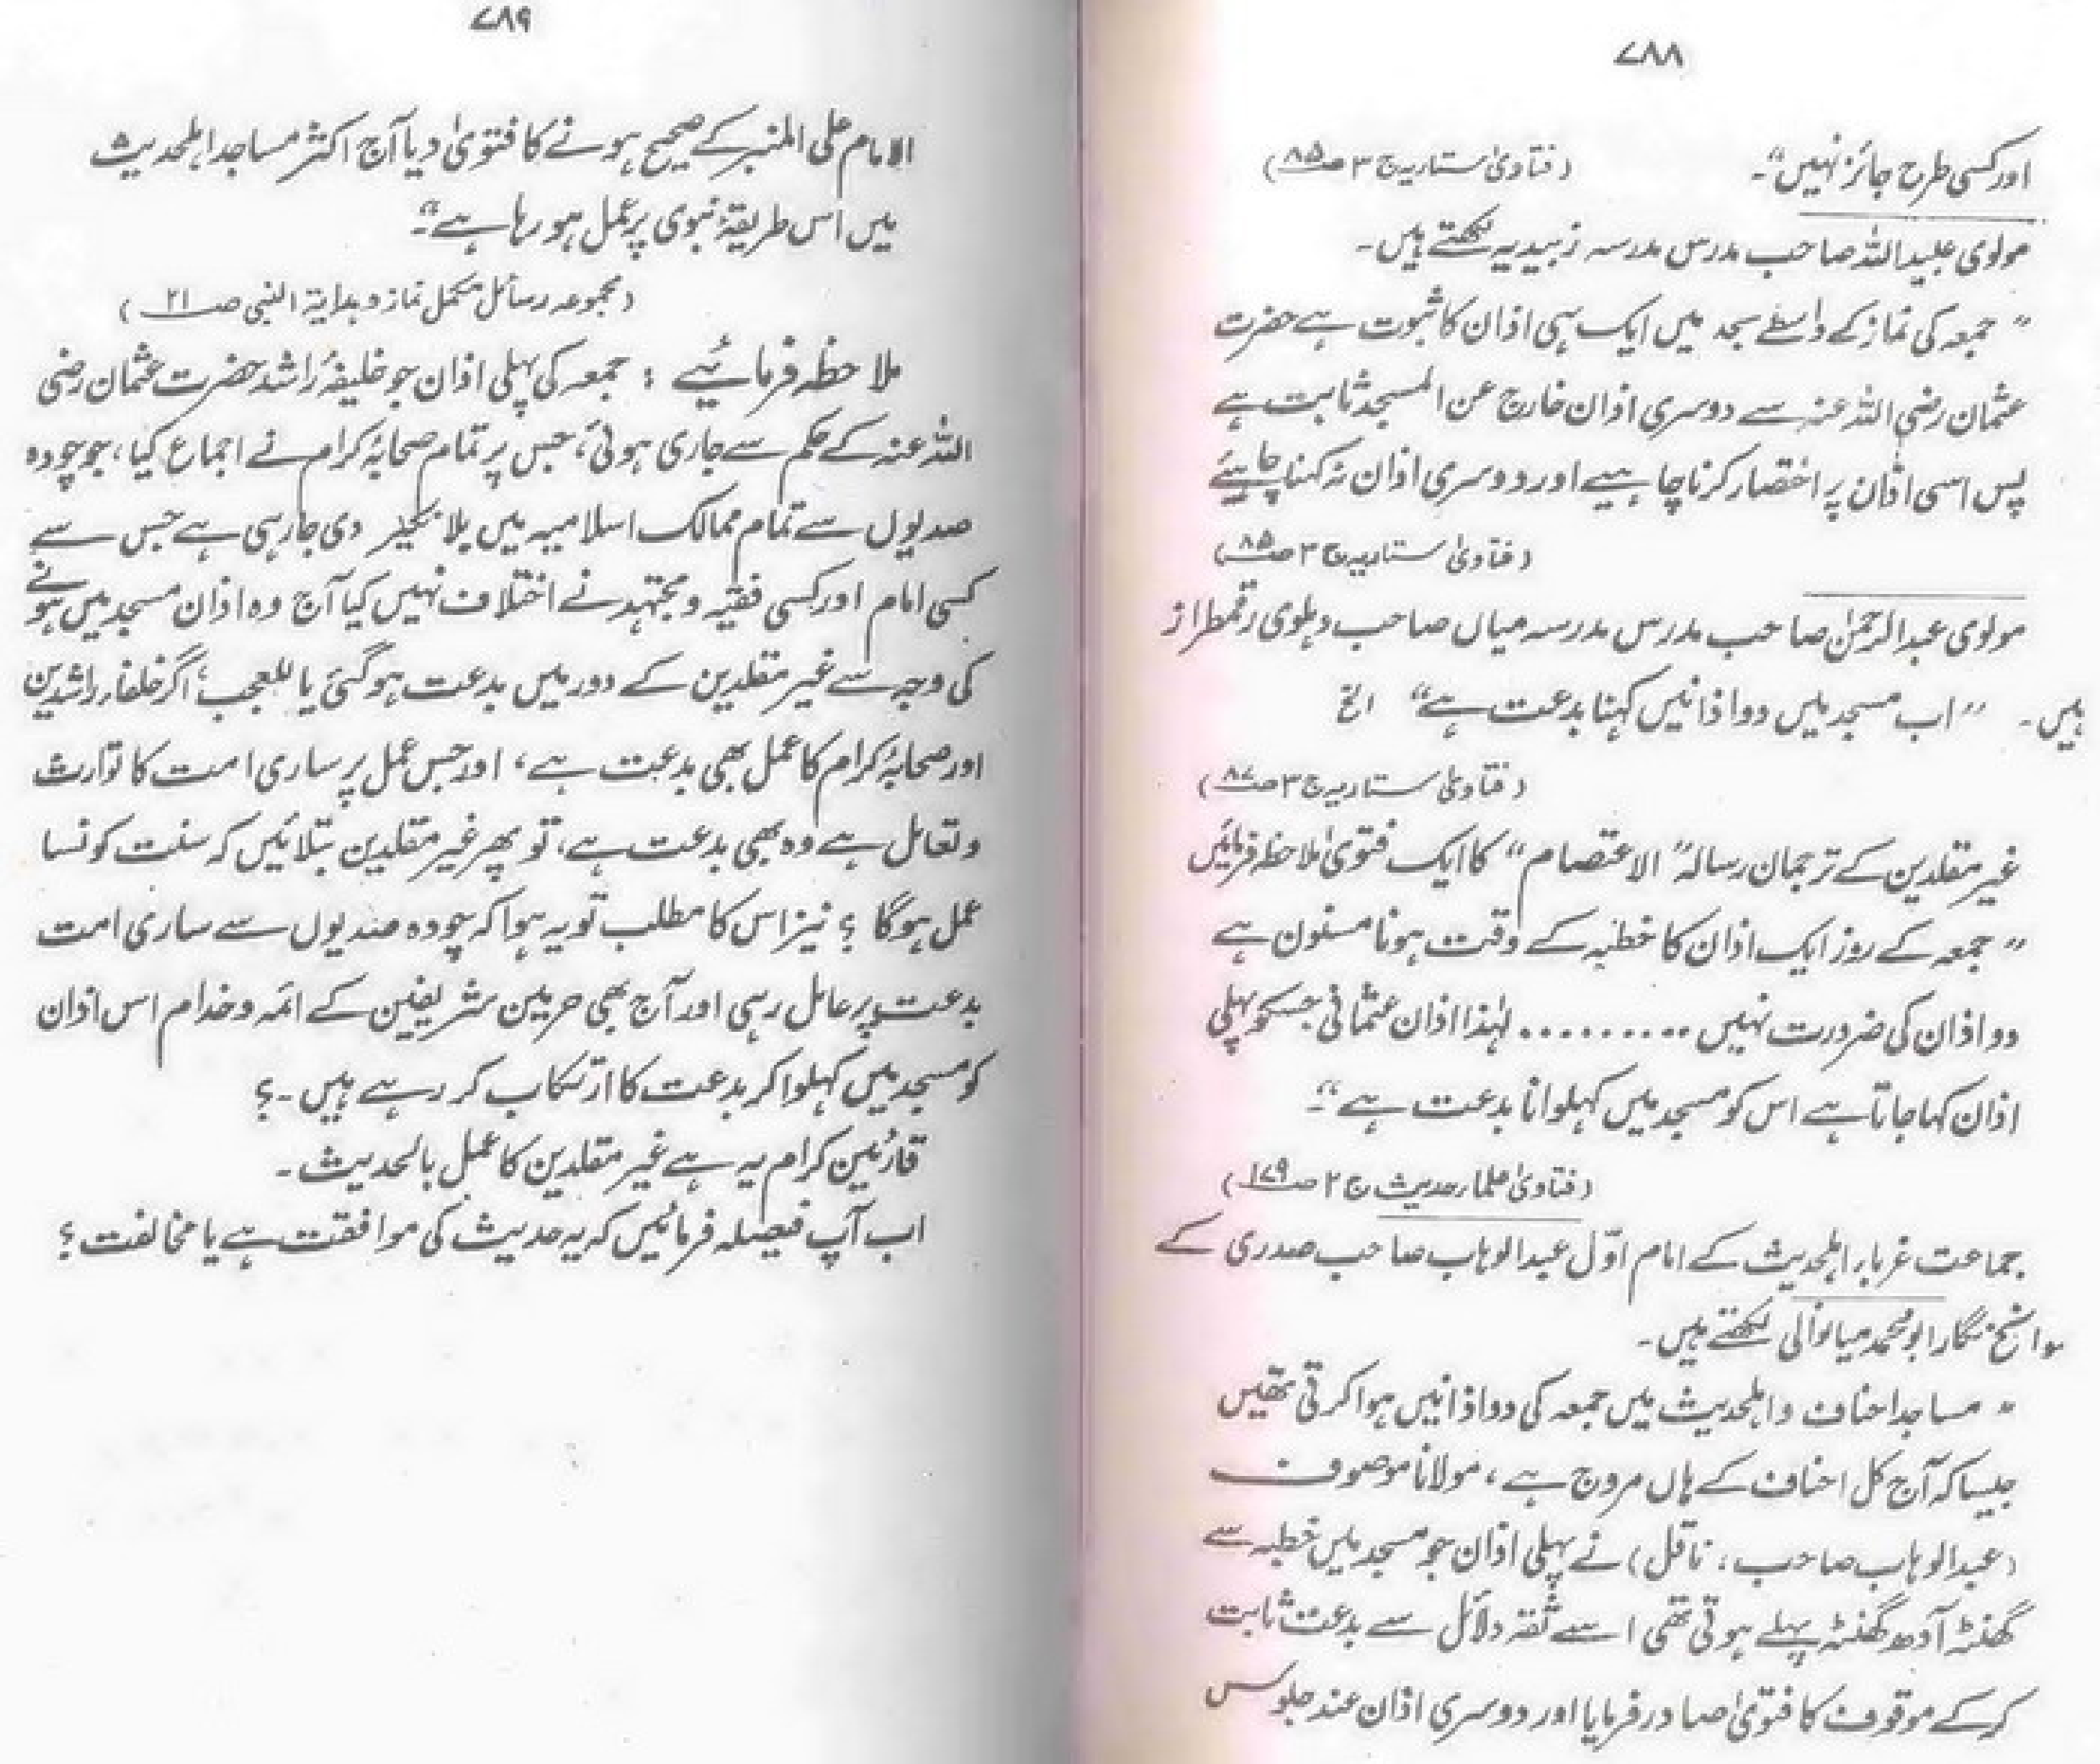 ۷۸۸
اور کسی طرح جائز نہیں“۔ (فتاویٰ ستاریہ ج ۳ ص ۸۵)
مولوی عبیداللہ صاحب مدرس مدرسہ زبیدیہ لکھتے ہیں۔
” جمعہ کی نماز کے واسطے مسجد میں ایک ہی اذان کا ثبوت ہے حضرت
عثمان رضی اللہ عنہ سے دوسری اذان خارج عن المسجد ثابت ہے
پس اسی اذان پر اختصار کرنا چاہیے اور دوسری اذان نہ کہنا چاہیئے
(فتاویٰ ستاریہ ج ۳ ص ۸۵)
مولوی عبدالرحمٰن صاحب مدرس مدرسہ میاں صاحب دہلوی رقمطراز
ہیں۔ ” اب مسجد میں دو اذانیں کہنا بدعت ہے“ الخ
(فتاویٰ ستاریہ ج ۳ ص ۸۷)
غیر مقلدین کے ترجمان رسالہ ”الاعتصام“ کا ایک فتویٰ ملاحظہ فرمائیں
” جمعہ کے روز ایک اذان کا خطبہ کے وقت ہونا مسنون ہے
دو اذان کی ضرورت نہیں ......... لہٰذا اذان عثمانی جسکو پہلی
اذان کہا جاتا ہے اس کو مسجد میں کہلوانا بدعت ہے“۔
(فتاویٰ علماء حدیث ج ۲ ص ۱۷۹)
جماعت غرباء اہلحدیث کے امام اوّل عبدالوہاب صاحب صدری کے
سوانح نگار ابو محمد میانوالی لکھتے ہیں۔
” مساجد احناف و اہلحدیث میں جمعہ کی دو اذانیں ہوا کرتی تھیں
جیسا کہ آج کل احناف کے ہاں مروج ہے، مولانا موصوف
(عبدالوہاب صاحب، ناقل) نے پہلی اذان جو مسجد میں خطبہ سے
گھنٹہ آدھ گھنٹہ پہلے ہوتی تھی اسے ثقہ دلائل سے بدعت ثابت
کر کے موقوف کا فتویٰ صادر فرمایا اور دوسری اذان عند جلوس
۷۸۹
الامام علی المنبر کے صحیح ہونے کا فتویٰ دیا آج اکثر مساجد اہلحدیث
میں اس طریقۂ نبوی پر عمل ہو رہا ہے“۔
(مجموعہ رسائل مکمل نماز و ہدایۃ النبی ص ۲۱)
ملاحظہ فرمائیے : جمعہ کی پہلی اذان جو خلیفۂ راشد حضرت عثمان رضی
اللہ عنہ کے حکم سے جاری ہوئی، جس پر تمام صحابۂ کرام نے اجماع کیا، جو چودہ
صدیوں سے تمام ممالک اسلامیہ میں بلا نکیر دی جا رہی ہے جس سے
کسی امام اور کسی فقیہ و مجتہد نے اختلاف نہیں کیا آج وہ اذان مسجد میں ہونے
کی وجہ سے غیر مقلدین کے دور میں بدعت ہو گئی یا للعجب، اگر خلفاء راشدین
اور صحابۂ کرام کا عمل بھی بدعت ہے، اور جس عمل پر ساری امت کا توارث
و تعامل ہے وہ بھی بدعت ہے، تو پھر غیر مقلدین بتلائیں کہ سنت کونسا
عمل ہوگا ؟ نیز اس کا مطلب تو یہ ہوا کہ چودہ صدیوں سے ساری امت
بدعت پر عامل رہی اور آج بھی حرمین شریفین کے ائمہ و خدام اس اذان
کو مسجد میں کہلوا کر بدعت کا ارتکاب کر رہے ہیں۔؟
قارئین کرام یہ ہے غیر مقلدین کا عمل بالحدیث۔
اب آپ فیصلہ فرمائیں کہ یہ حدیث کی موافقت ہے یا مخالفت ؟